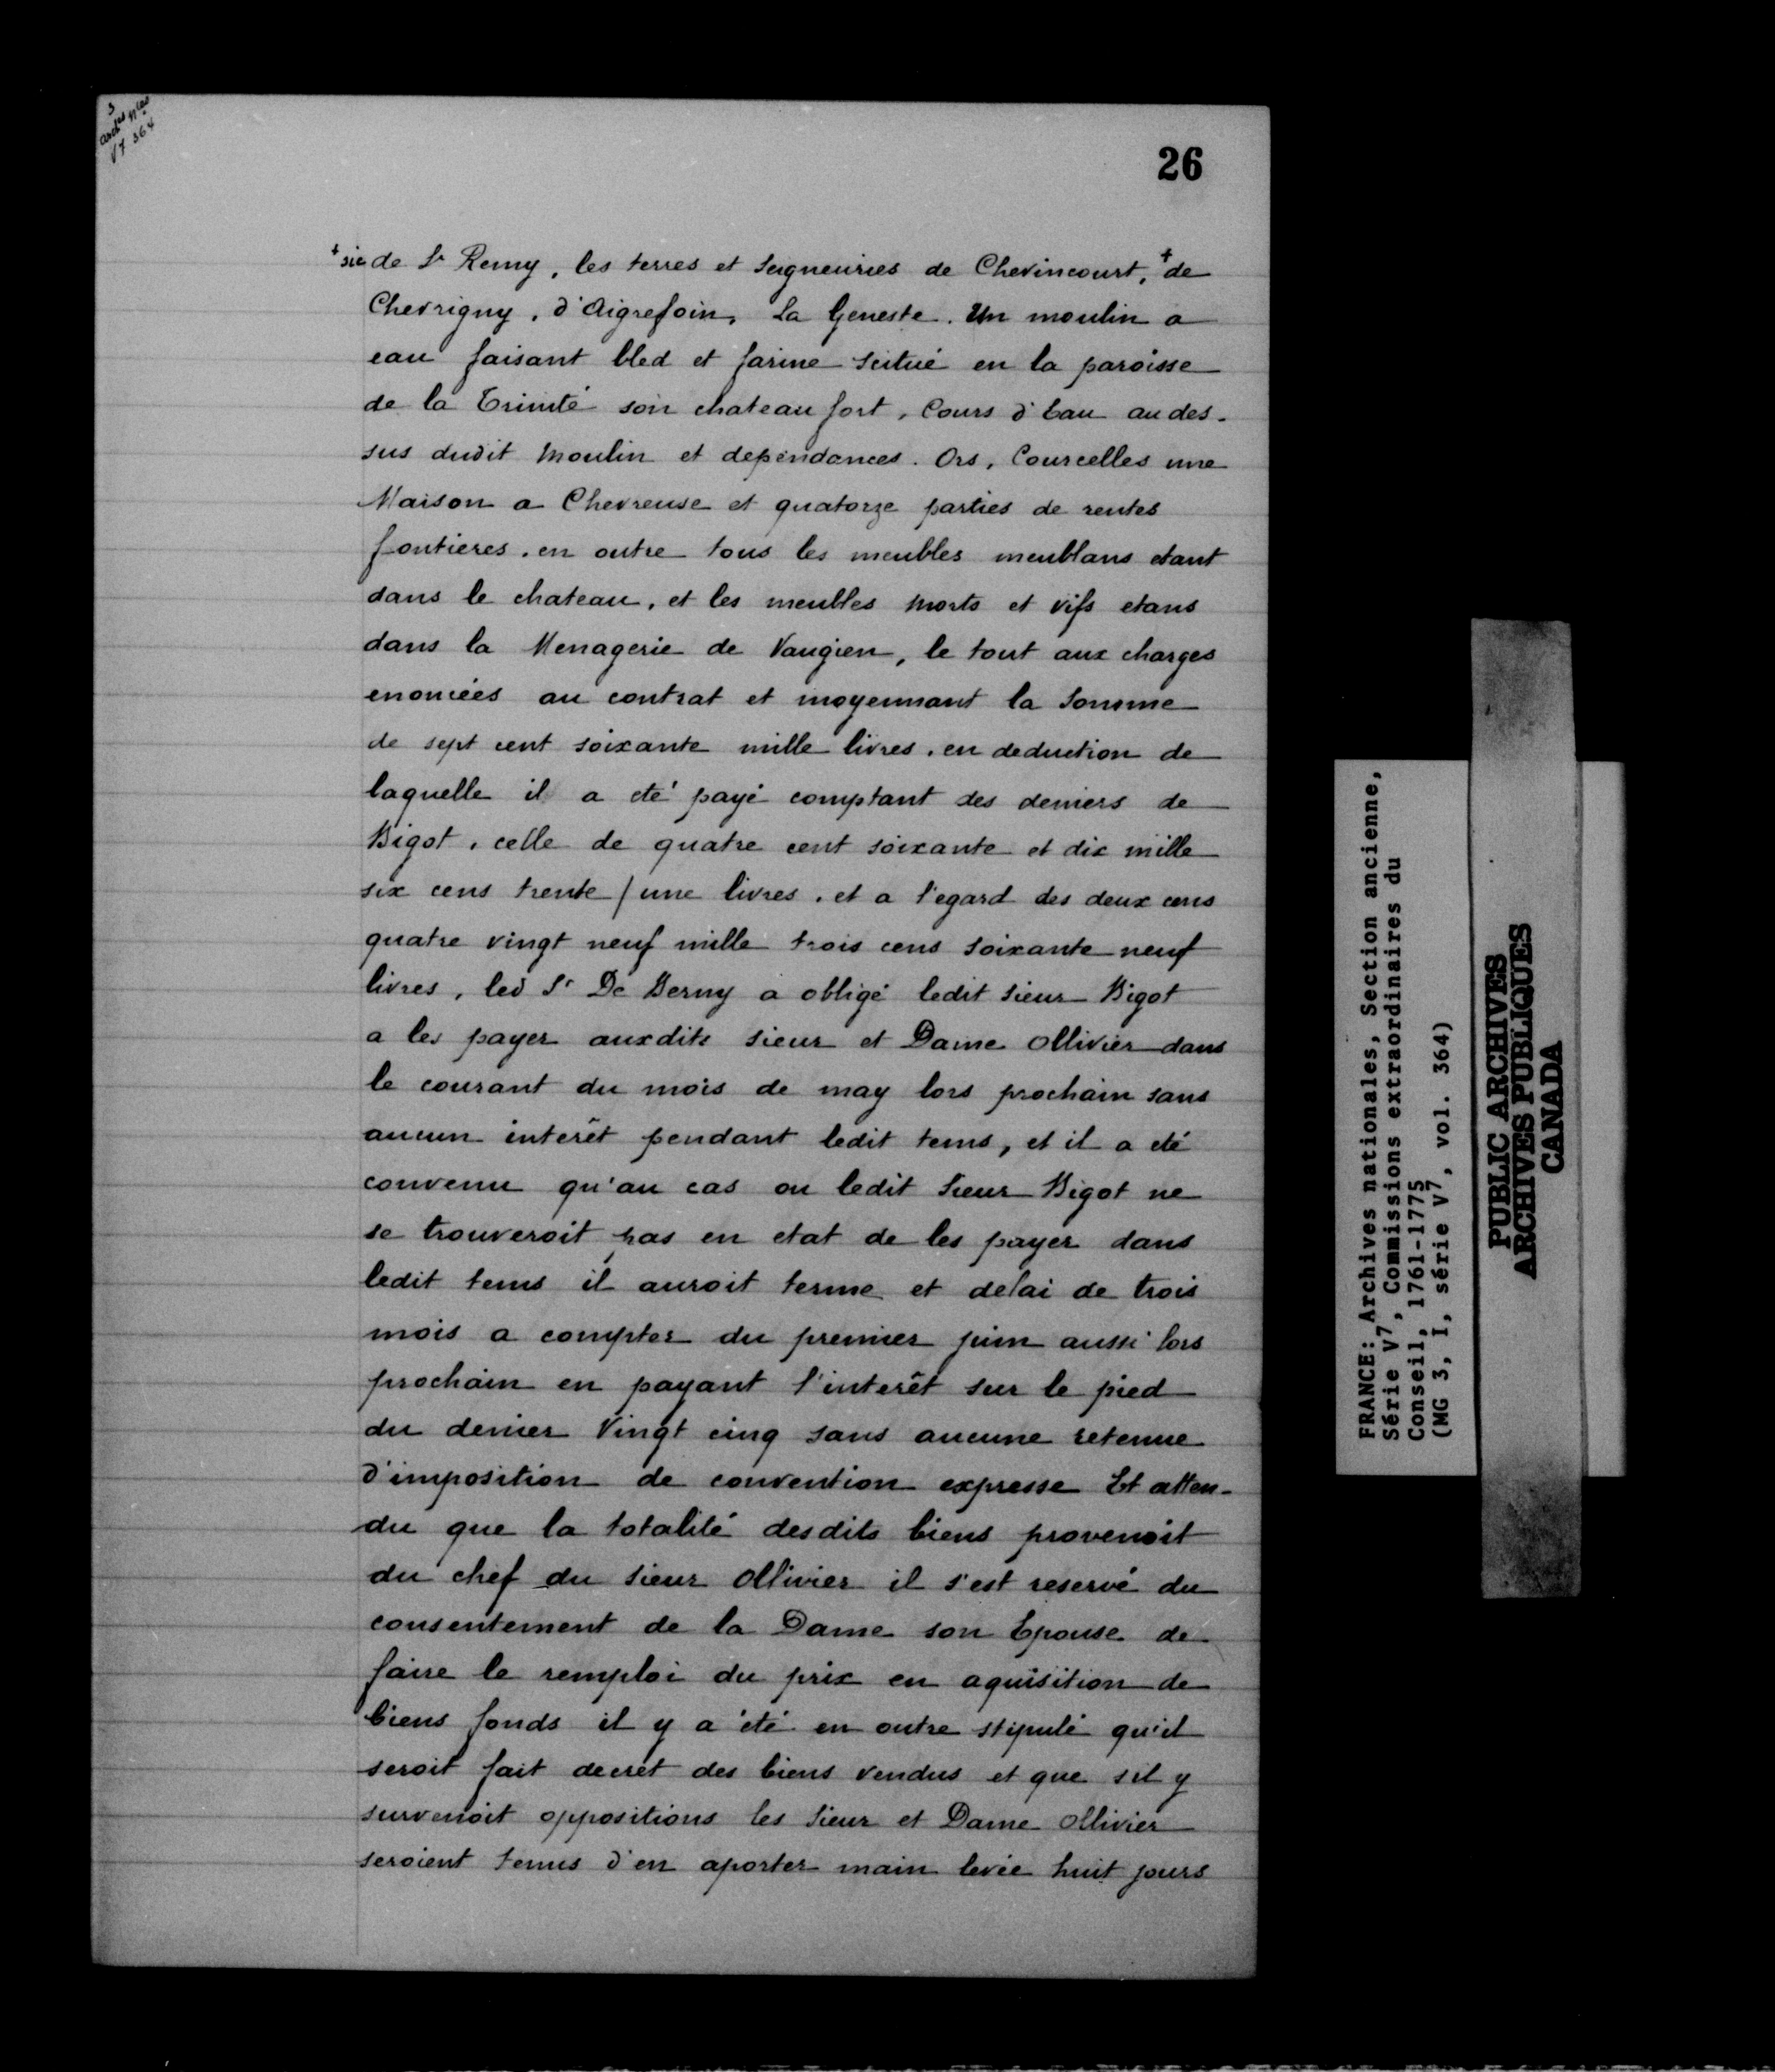 3
Arch^es N^les
V7 364
26
+ sic de S^t Remy, les terres et Seigneuries de Chevincourt,+ de
Chevrigny, d'Aigrefoin, La Geneste. Un moulin a
eau faisant bled et farine scitué en la paroisse
de la Trinité son chateau fort, Cours d'Eau au des-
sus dudit Moulin et dependances. Ors, Courcelles une
Maison a Chevreuse et quatorze parties de rentes
fontieres. en outre tous les meubles meublans etant
dans le chateau, et les meubles morts et vifs etans
dans la Menagerie de Vaugien, le tout aux charges
enoncées au contrat et moyennant la Somme
de sept cent soixante mille livres. en deduction de
laquelle il a eté payé comptant des deniers de
Bigot, celle de quatre cent soixante et dix mille
six cens trente / une livres. et a l'egard des deux cens
quatre vingt neuf mille trois cens soixante neuf
livres, led S^r De Berny a obligé ledit Sieur Bigot
a les payer auxdits Sieur et Dame Ollivier dans
le courant du mois de may lors prochain sans
aucun interêt pendant ledit tems, et il a eté
convenu qu'au cas ou ledit Sieur Bigot ne
se trouveroit pas en etat de les payer dans
ledit tems il auroit terme et delai de trois
mois a compter du premier juin aussi lors
prochain en payant l'interêt sur le pied
du denier Vingt cinq sans aucune retenue
d'imposition de convention expresse Et atten-
du que la totalité desdits biens provenoit
du chef du Sieur Ollivier il s'est reservé du
consentement de la Dame son Epouse de
faire le remploi du prix en aquisition de
biens fonds il y a été en outre stipulé qu'il
seroit fait decret des biens vendus et que sil y
survenoit oppositions les Sieur et Dame Ollivier
seroient tenus d'en aporter main levée huit jours
FRANCE: Archives nationales, Section ancienne,
Série V7, Commissions extraordinaires du
Conseil, 1761-1775
(MG 3, I, série V7, vol. 364)
PUBLIC ARCHIVES
ARCHIVES PUBLIQUES
CANADA